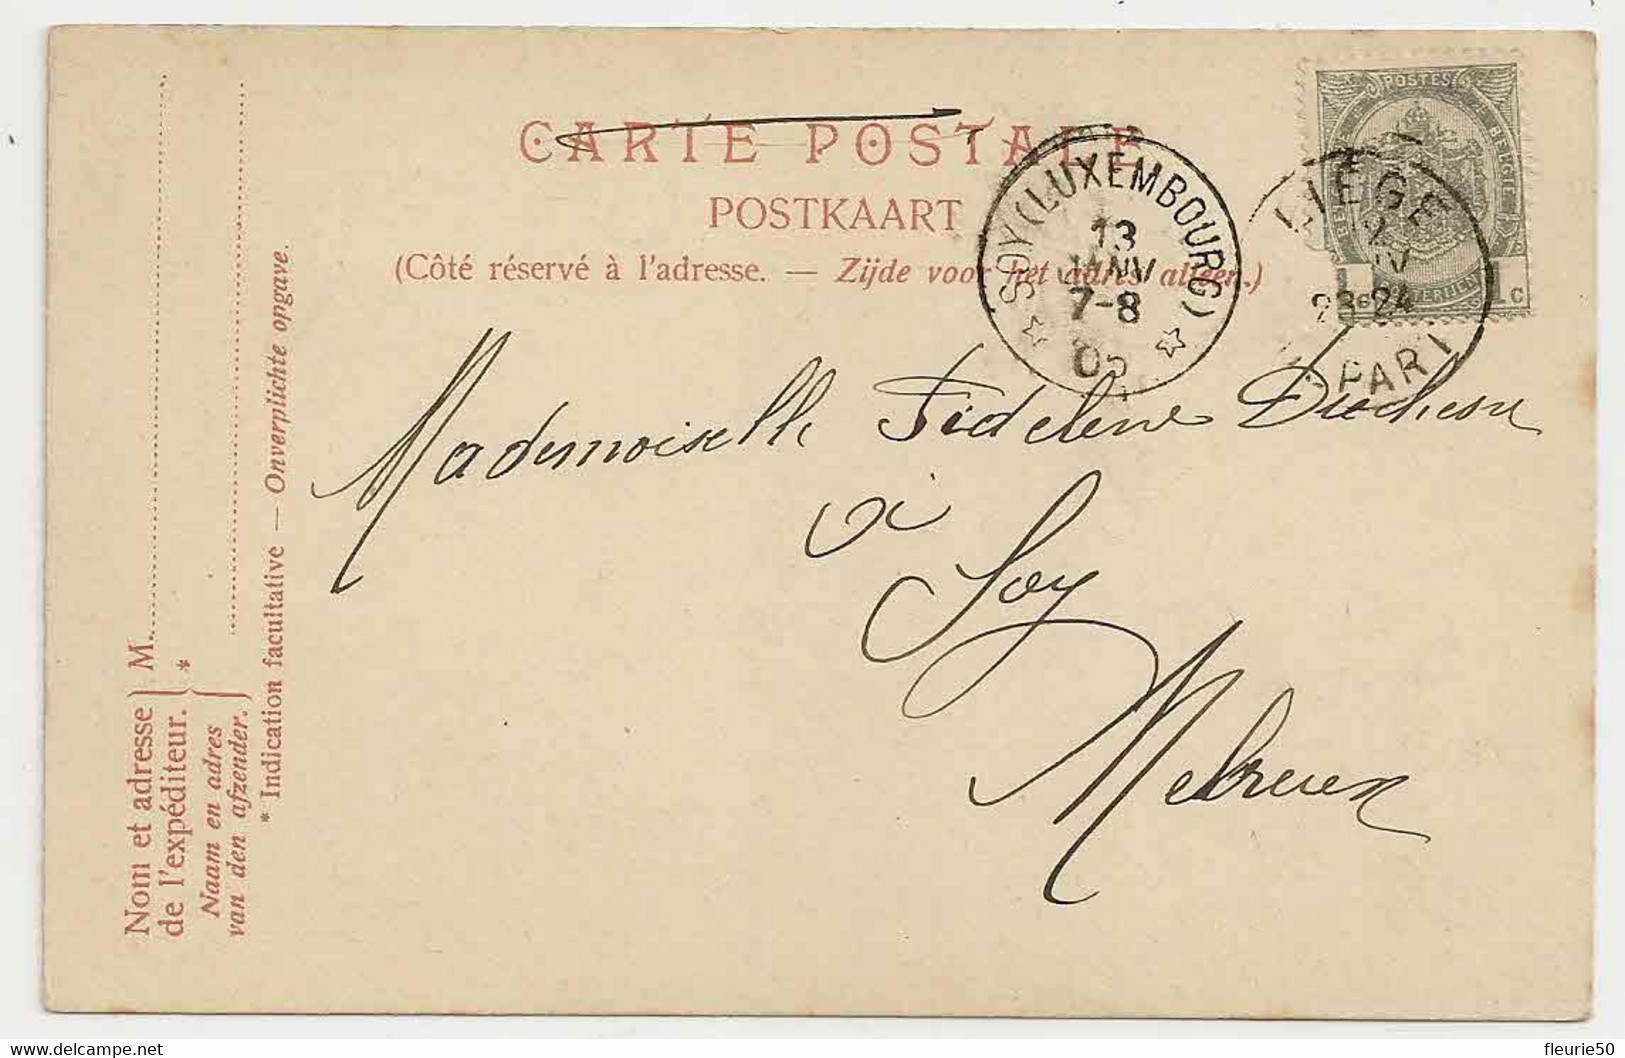 CARTE POSTALE
POSTKAART
(Côté réservé à l'adresse. — Zijde voor het adres alleen.)
SOY (LUXEMBOURG)
13
JANV
7-8
05
LIÉGE
23-24
POSTES
BELGIQUE
BELGIË
1 C
Mademoiselle Fidelene Duchesne
à
Soy
Melreux
Nom et adresse
de l'expéditeur. } M.
*
Naam en adres
van den afzender. }
* Indication facultative — Onverplichte opgave.
fleurie50